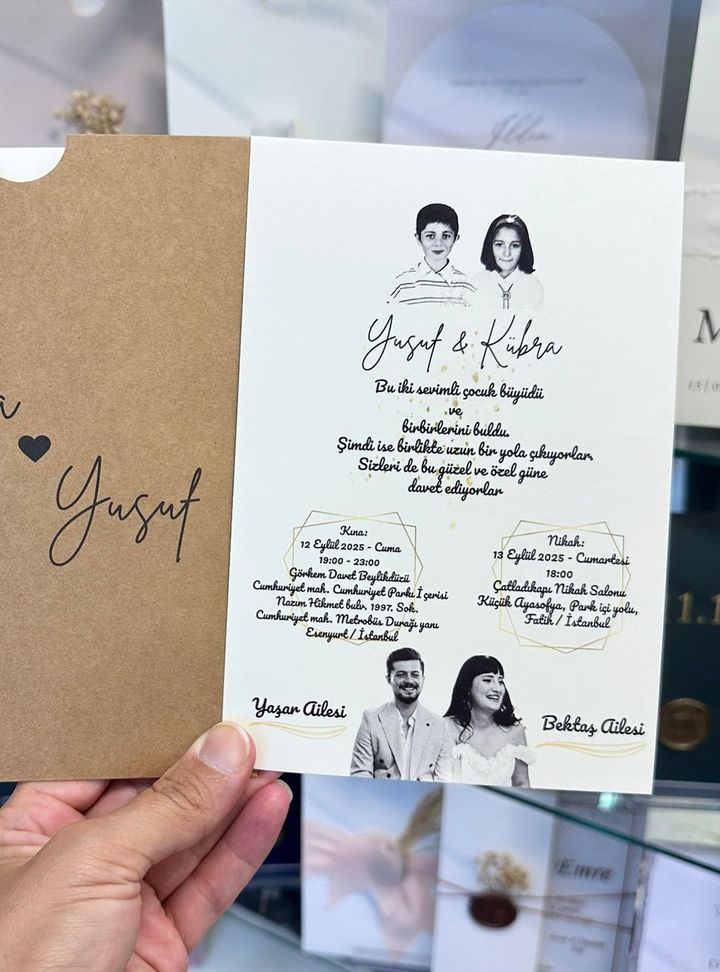 Yusuf
Yusuf & Kübra
Bu iki sevimli çocuk büyüdü
ve
birbirlerini buldu.
Şimdi ise birlikte uzun bir yola çıkıyorlar.
Sizleri de bu güzel ve özel güne
davet ediyorlar
Kına:
12 Eylül 2025 - Cuma
19:00 - 23:00
Görkem Davet Beylikdüzü
Cumhuriyet mah. Cumhuriyet Parkı İçerisi
Nazım Hikmet bulv. 1997. Sok.
Cumhuriyet mah. Metrobüs Durağı yanı
Esenyurt / İstanbul
Nikah:
13 Eylül 2025 - Cumartesi
18:00
Çatladıkapı Nikah Salonu
Küçük Ayasofya, Park içi yolu,
Fatih / İstanbul
Yaşar Ailesi
Bektaş Ailesi
Emre